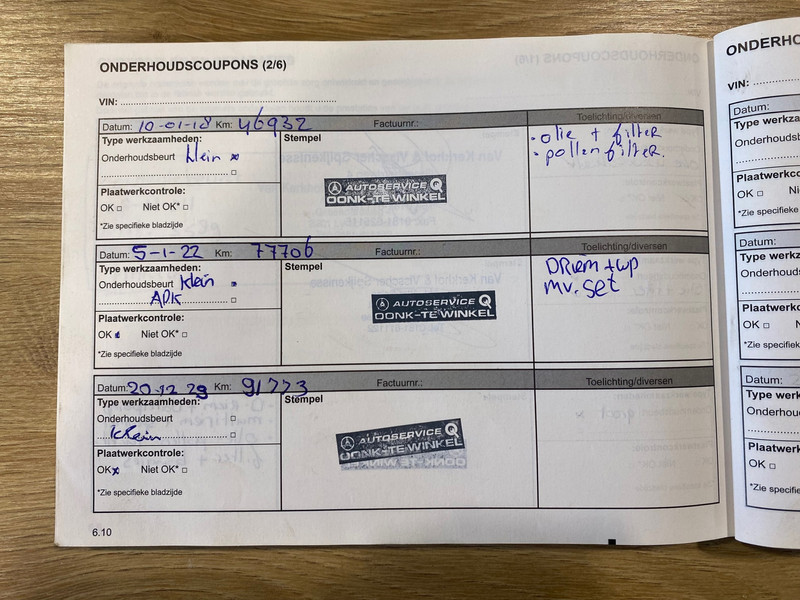 ONDERHOUDSCOUPONS (2/6)
VIN:
Datum: 10-01-18 Km: 46932 Factuurnr.: Toelichting/diversen
Type werkzaamheden: Stempel
Onderhoudsbeurt klein
• olie + filter
• pollenfilter.
AUTOSERVICE
DONK-TE WINKEL
Plaatwerkcontrole:
OK Niet OK*
*Zie specifieke bladzijde
Datum: 5-1-22 Km: 77706 Factuurnr.: Toelichting/diversen
Type werkzaamheden: Stempel
Onderhoudsbeurt klein
APK
DRiem + wp
mv. set
AUTOSERVICE
DONK-TE WINKEL
Plaatwerkcontrole:
OK Niet OK*
*Zie specifieke bladzijde
Datum: 20-12-23 Km: 91773 Factuurnr.: Toelichting/diversen
Type werkzaamheden: Stempel
Onderhoudsbeurt
klein
AUTOSERVICE
DONK-TE WINKEL
Plaatwerkcontrole:
OK Niet OK*
*Zie specifieke bladzijde
6.10
ONDERHO
VIN:
Datum:
Type werkza
Onderhoudsb
Plaatwerkco
OK Ni
*Zie specifieke
Datum:
Type werkza
Onderhouds
Plaatwerkc
OK N
*Zie specifieke
Datum:
Type werkza
Onderhou
Plaatwerkc
OK
*Zie specifie